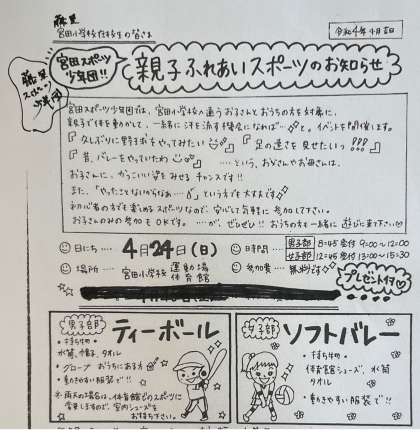 藤里
宮田小学校在校生の皆さま
令和4年4月吉日
宮田スポーツ少年団!!
藤里スポーツ少年団
親子ふれあいスポーツのお知らせ
宮田スポーツ少年団では、宮田小学校へ通うお子さんとおうちの方を対象に、
親子で体を動かして、一緒に汗を流す機会になれば…と。イベントを開催します。
『久しぶりに野球をやってみたい』『足の速さを見せたいっ!!!』
『昔、バレーをやっていたわ』……という、お父さんやお母さんは、
お子さんに、かっこいい姿をみせるチャンスです!!
また、『やったことないからなぁ…』という方でも大丈夫です
初心者の方でも楽しめるスポーツなので、安心して気軽に参加して下さい。
お子さんのみの参加もOKです。……が、ぜひぜひ!!おうちの方も一緒に遊びに来て下さい♡
日にち…4月24日(日)
時間…男子部 8:45受付 9:00~12:00
女子部 12:45受付 13:00~15:30
場所…宮田小学校 運動場 体育館
参加費…無料です
プレゼント付♡
男子部 ティーボール
・持ち物・
水筒、帽子、タオル
・グローブ おうちにある方
・動きやすい服装で!!
※雨天の場合は、体育館でのスポーツに
変更しますので、室内シューズを
お持ち下さい。
女子部 ソフトバレー
・持ち物・
体育館シューズ、水筒
タオル
・動きやすい服装で!!